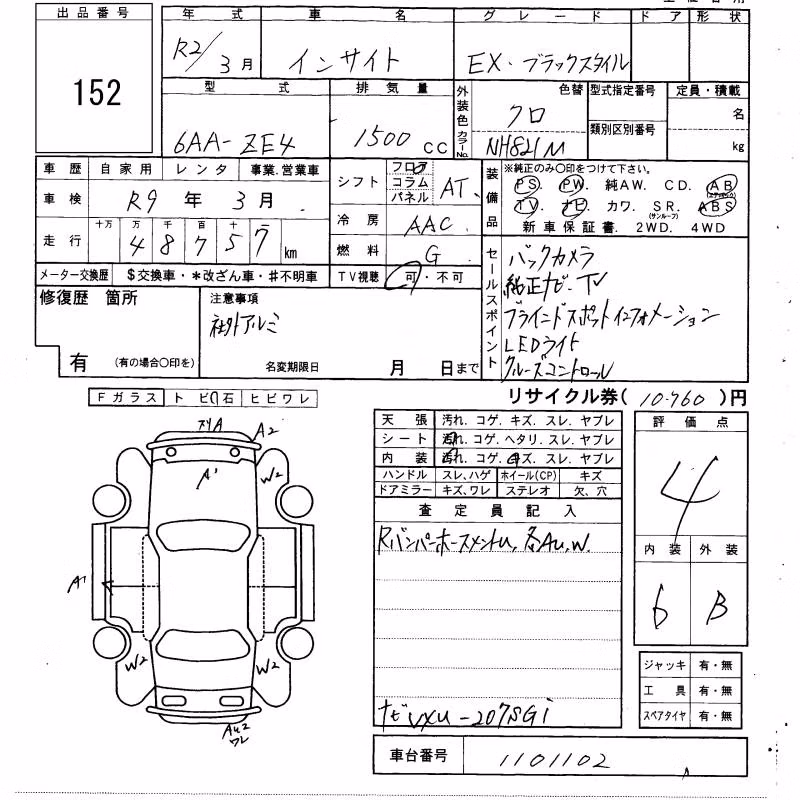 出品番号
152
年式 車名 グレード ドア 形状
R2/3月 インサイト EX・ブラックスタイル
型式 排気量 外装色 色替 型式指定番号 定員・積載
6AA-ZE4 1500cc クロ 名
カラーNo. NH821M 類別区別番号 kg
車歴 自家用 レンタ 事業.営業車
車検 R9年3月
走行 十万 万 千 百 十
48757km
メーター交換歴 $交換車・*改ざん車・#不明車
シフト フロア コラム パネル AT
冷房 AAC
燃料 G
TV視聴 可・不可
装備品 ※純正のみ〇印をつけて下さい。
PS. PW. 純AW. CD. AB
TV. ナビ. カワ. SR.(サンルーフ) ABS
新車保証書. 2WD. 4WD
修復歴 箇所
有 (有の場合〇印を)
注意事項
社外アルミ
名変期限日 月 日まで
セールスポイント
バックカメラ
純正ナビ・TV
ブラインドスポットインフォメーション
LEDライト
クルーズコントロール
リサイクル券(10,760)円
Fガラス トビ石 ヒビワレ
スリA A2
A1 W2 W2
A1
W2 W2
AU2
ワレ
天張 汚れ.コゲ.キズ.スレ.ヤブレ
シート 汚れ.コゲ.ヘタリ.スレ.ヤブレ
内装 汚れ.コゲ.キズ.スレ.ヤブレ
ハンドル スレ、ハゲ ホイール(CP) キズ
ドアミラー キズ、ワレ ステレオ 欠、穴
査定員記入
RバンパーホースメントU, 各AU,W.
ナビVXU-207SGi
評価点
4
内装 外装
6 B
ジャッキ 有・無
工具 有・無
スペアタイヤ 有・無
車台番号 1101102